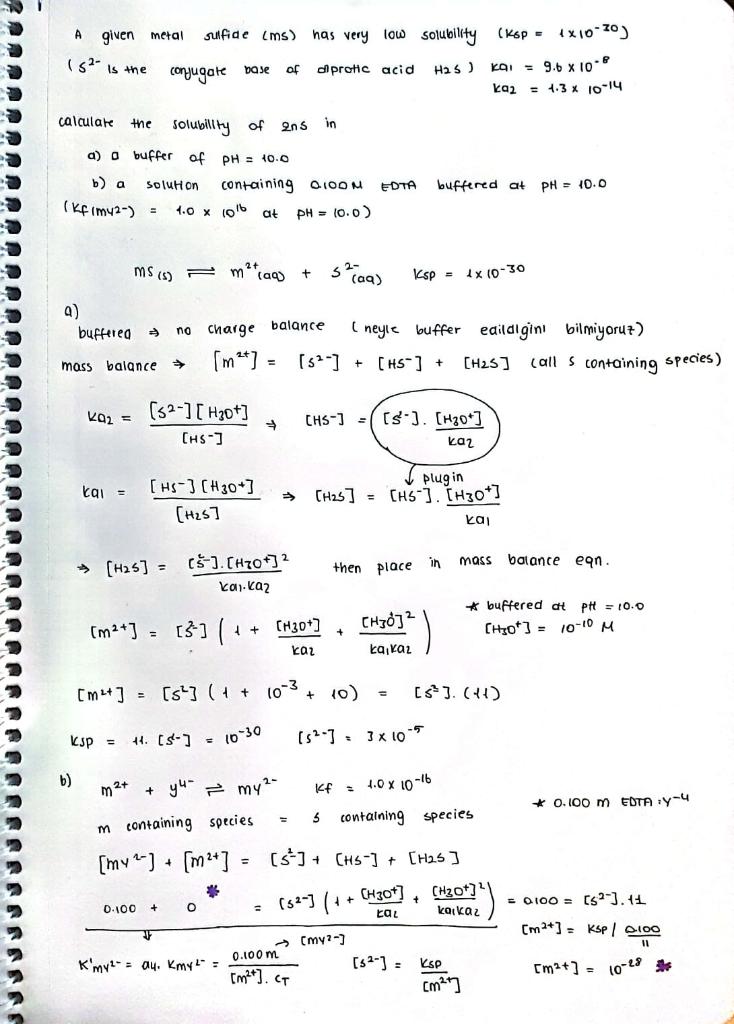 A given metal sulfide (ms) has very low solubility (Ksp = 1x10⁻³⁰)
(S²⁻ is the conjugate base of diprotic acid H2S) Ka1 = 9.6 x 10⁻⁸
Ka2 = 1.3 x 10⁻¹⁴
calculate the solubility of 2ns in
a) a buffer of pH = 10.0
b) a solution containing 0.100M EDTA buffered at pH = 10.0
(Kf(my2-) = 1.0 x 10¹⁶ at pH = 10.0)
ms(s) ⇌ m²⁺(aq) + S²⁻(aq) Ksp = 1x10⁻³⁰
a)
buffered → no charge balance (neyle buffer edildigini bilmiyoruz)
mass balance → [m²⁺] = [S²⁻] + [HS⁻] + [H2S] (all s containing species)
Ka2 = [S²⁻][H3O⁺] / [HS⁻] → [HS⁻] = [S²⁻]. [H3O⁺] / Ka2
plug in
Ka1 = [HS⁻][H3O⁺] / [H2S] ⇒ [H2S] = [HS⁻]. [H3O⁺] / Ka1
→ [H2S] = [S²⁻].[H3O⁺]² / Ka1.Ka2 then place in mass balance eqn.
* buffered at pH = 10.0
[m²⁺] = [S²⁻] ( 1 + [H3O⁺] / Ka2 + [H3O⁺]² / Ka1Ka2 ) [H3O⁺] = 10⁻¹⁰ M
[m²⁺] = [S²⁻] (1 + 10⁻³ + 10) = [S²⁻]. (11)
Ksp = 11. [S²⁻] = 10⁻³⁰ [S²⁻] = 3x10⁻⁵
b) m²⁺ + y⁴⁻ ⇌ my²⁻ Kf = 1.0 x 10⁻¹⁶
* 0.100 m EDTA : Y⁻⁴
m containing species = s containing species
[my²⁻] + [m²⁺] = [S²⁻] + [HS⁻] + [H2S]
0.100 + 0 * = [S²⁻] ( 1 + [H3O⁺] / Ka2 + [H3O⁺]² / Ka1Ka2 ) = 0.100 = [S²⁻].11
[m²⁺] = Ksp / 0.100 / 11
→ [my²⁻]
K'my²⁻ = αy. Kmy²⁻ = 0.100 m / [m²⁺]. CT [S²⁻] = Ksp / [m²⁺] [m²⁺] = 10⁻²⁸ *